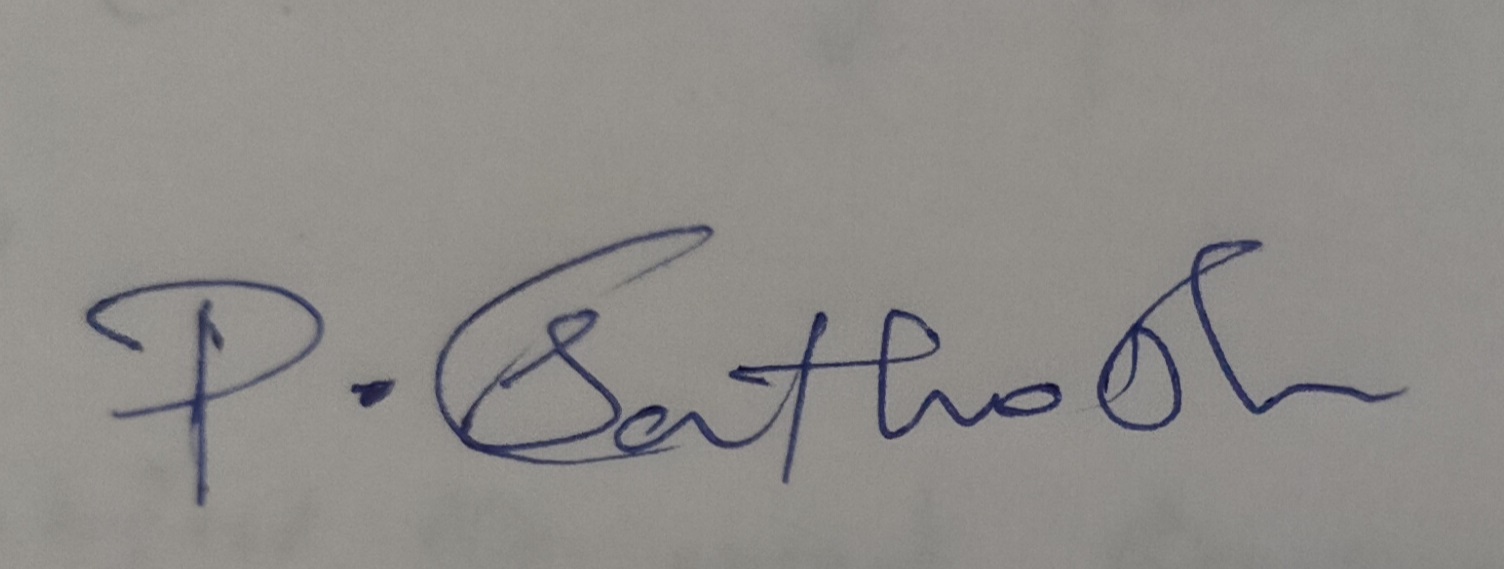 P. Santhosh